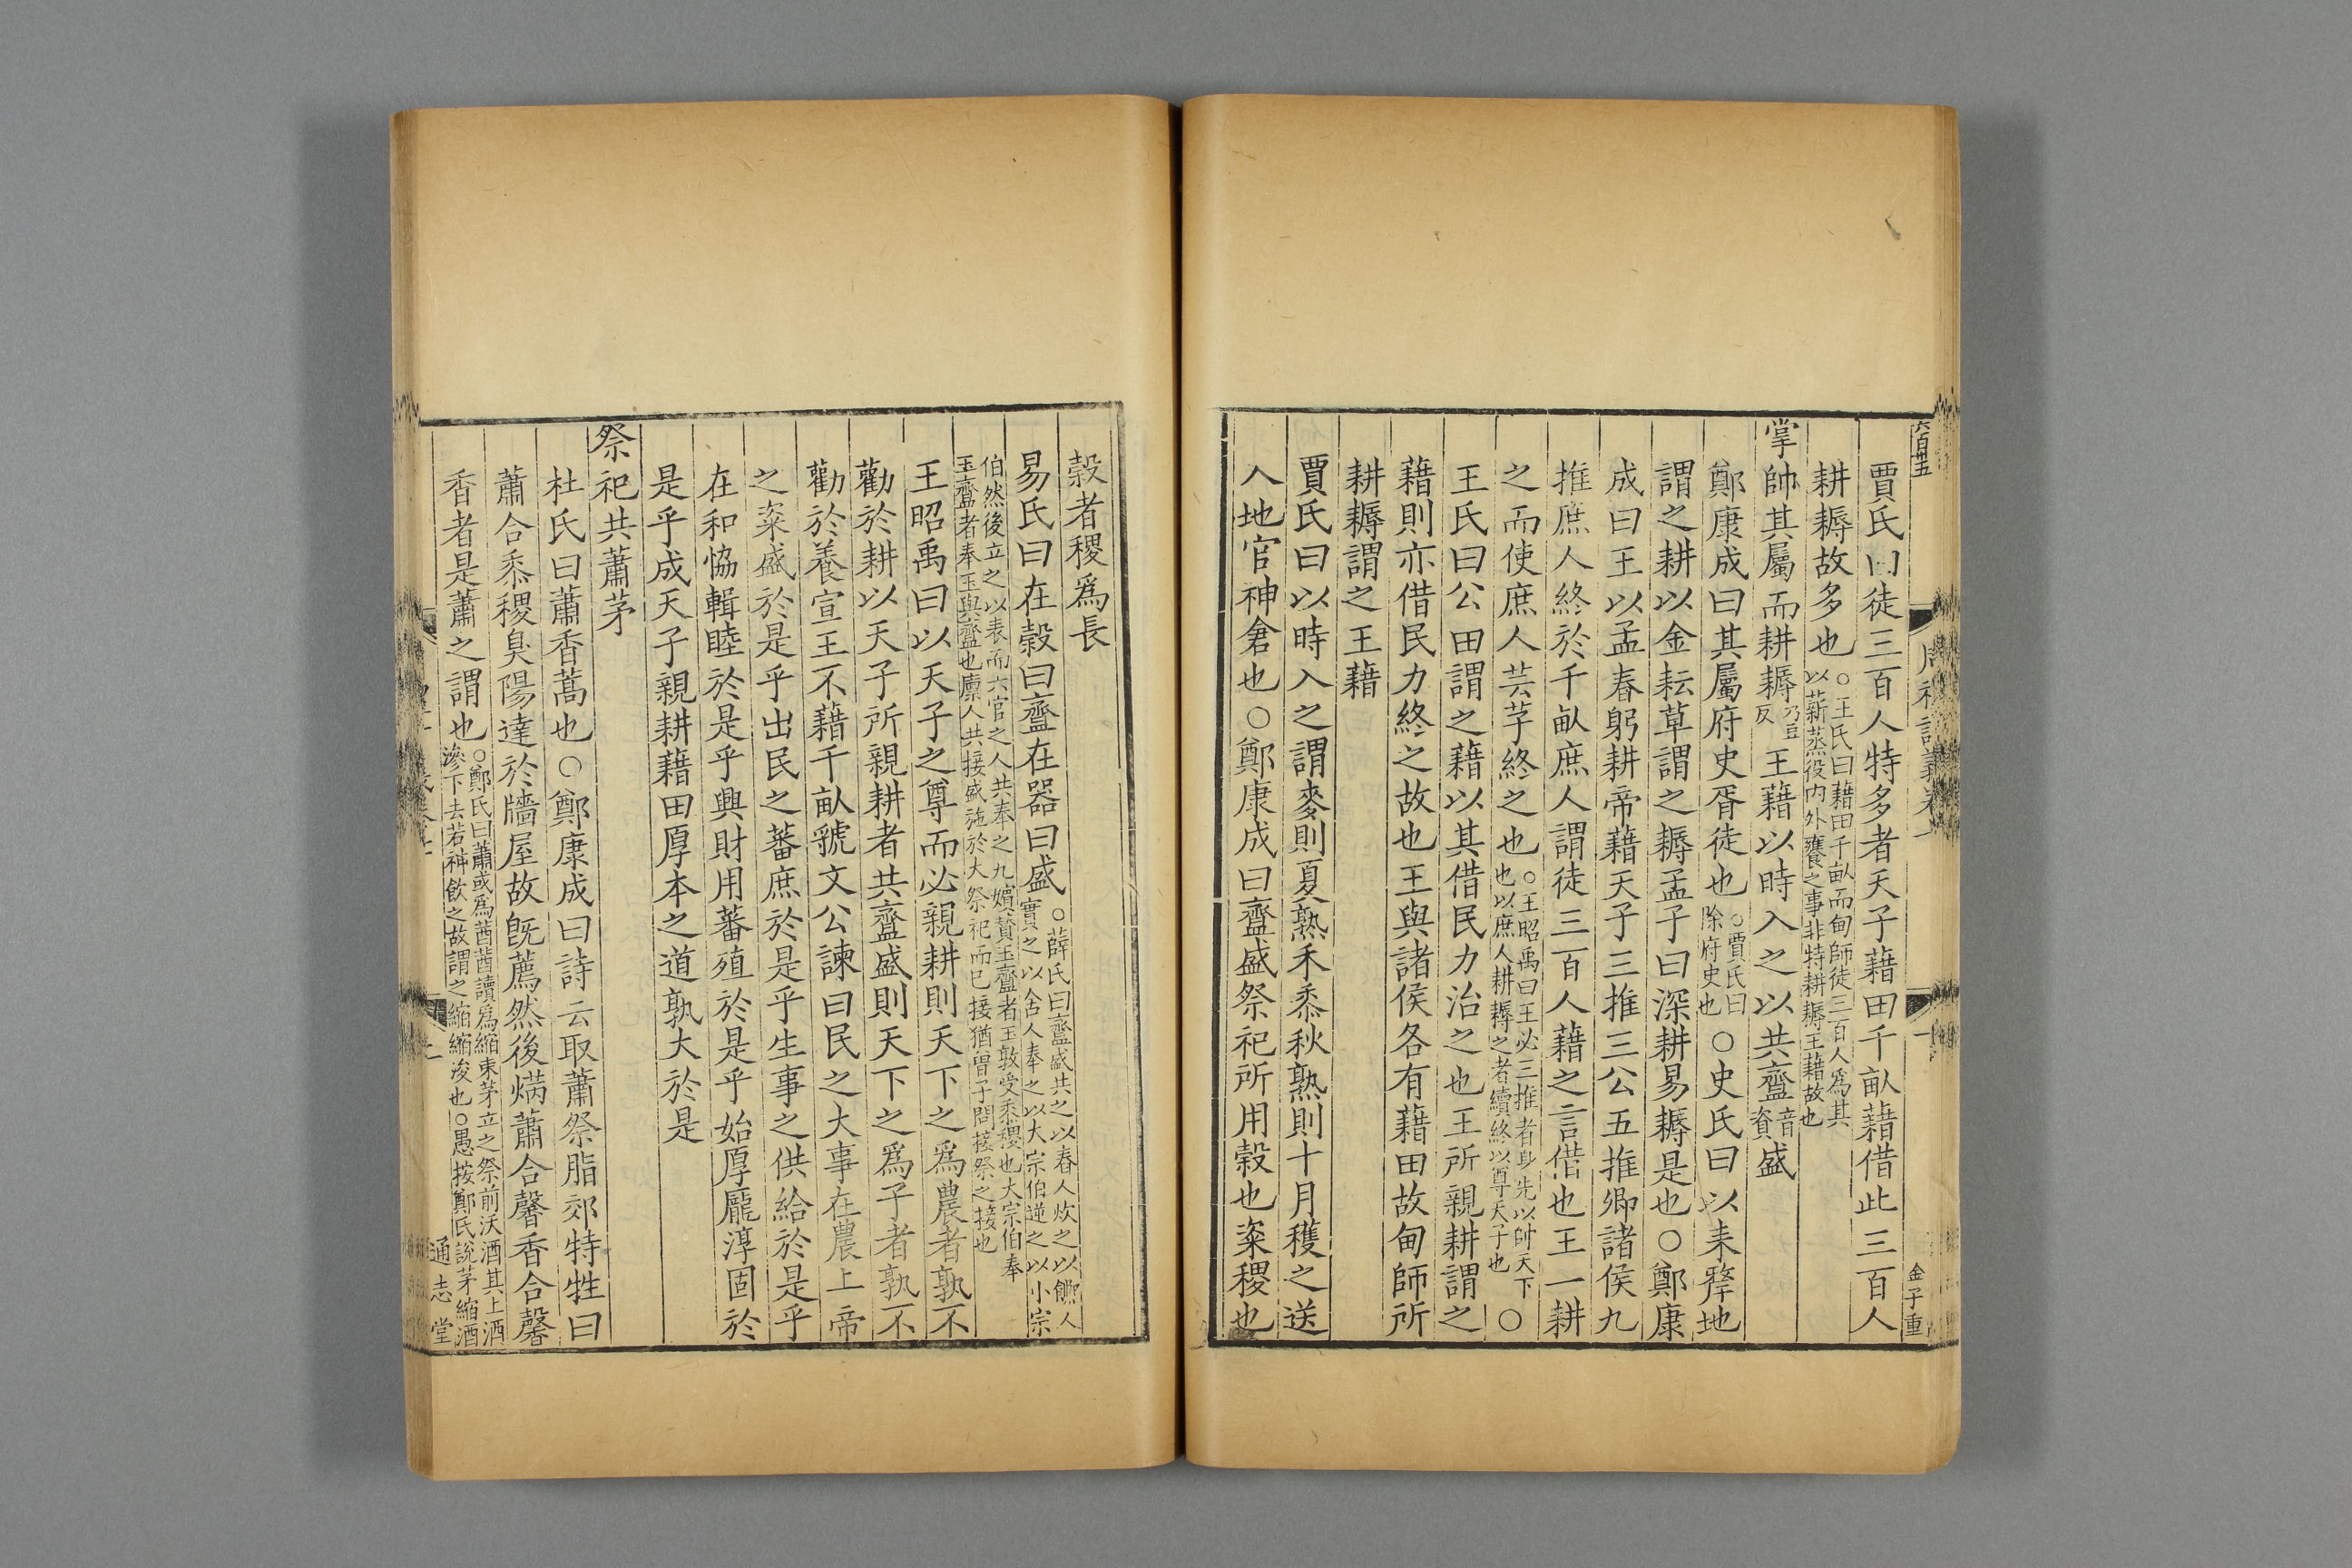 六百卅五
金子重
賈氏曰徒三百人特多者天子藉田千畝藉借此三百人
耕耨故多也○王氏曰藉田千畝而甸師徒三百人爲其以薪蒸役内外饔之事非特耕耨王藉故也
掌帥其屬而耕耨乃豆反王藉以時入之以共齍音資盛
鄭康成曰其屬府史胥徒也○賈氏曰除府史也○史氏曰以耒犂地
謂之耕以金耘草謂之耨孟子曰深耕易耨是也○鄭康
成曰王以孟春躬耕帝藉天子三推三公五推卿諸侯九
推庶人終於千畝庶人謂徒三百人藉之言借也王一耕
之而使庶人芸芓終之也○王昭禹曰王必三推者身先以帥天下也以庶人耕耨之者續終以尊天子也○
王氏曰公田謂之藉以其借民力治之也王所親耕謂之
藉則亦借民力終之故也王與諸侯各有藉田故甸師所
耕耨謂之王藉
賈氏曰以時入之謂麥則夏熟禾黍秋熟則十月穫之送
入地官神倉也○鄭康成曰齍盛祭祀所用穀也粢稷也
穀者稷爲長
易氏曰在穀曰齍在器曰盛○薛氏曰齍盛共之以舂人炊之以饎人實之以舍人奉之以大宗伯逆之以小宗
伯然後立之以表而六官之人共奉之九嬪贊玉齍者王敦受黍稷也大宗伯奉玉齍者奉玉與齍也廩人共接盛施於大祭祀而已接猶曾子問接祭之接也
王昭禹曰以天子之尊而必親耕則天下之爲農者孰不
勸於耕以天子所親耕者共齍盛則天下之爲子者孰不
勸於養宣王不藉千畝虢文公諫曰民之大事在農上帝
之粢盛於是乎出民之蕃庶於是乎生事之供給於是乎
在和協輯睦於是乎興財用蕃殖於是乎始厚龐淳固於
是乎成天子親耕藉田厚本之道孰大於是
祭祀共蕭茅
杜氏曰蕭香蒿也○鄭康成曰詩云取蕭祭脂郊特牲曰
蕭合黍稷臭陽達於牆屋故旣薦然後焫蕭合馨香合馨
香者是蕭之謂也○鄭氏曰蕭或爲莤莤讀爲縮束茅立之祭前沃酒其上酒滲下去若神飲之故謂之縮縮浚也○愚按鄭氏說茅縮酒
通志堂